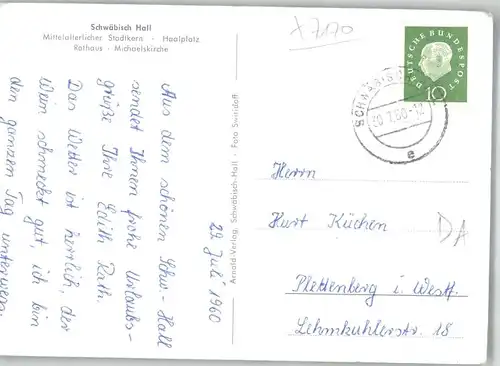 Schwäbisch Hall
Mittelalterlicher Stadtkern · Haalplatz
Rathaus · Michaelskirche
x 7170
DEUTSCHE BUNDESPOST
10
SCHWÄBISCH
20.7.60-12
e
29. Juli 1960
Aus dem schönen Schw.-Hall
sendet Ihnen frohe Urlaubs-
grüße Ihre Edith Rath.
Das Wetter ist herrlich, der
Wein schmeckt gut, ich bin
den ganzen Tag unterwegs.
Arnold-Verlag, Schwäbisch-Hall · Foto Swiridoff
Herrn
Kurt Küchen
Plettenberg i. Westf.
Lehmkuhlerstr. 18
DA